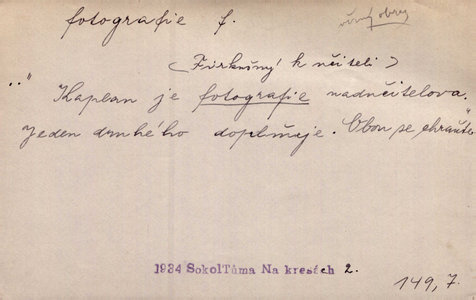 fotografie f.
(Firkušný k učiteli)
„Kaplan je fotografie nadučitelova.
Jeden druhého doplňuje. Obou se chraňte"
1934 SokolTůma Na kresách 2.
149,7.